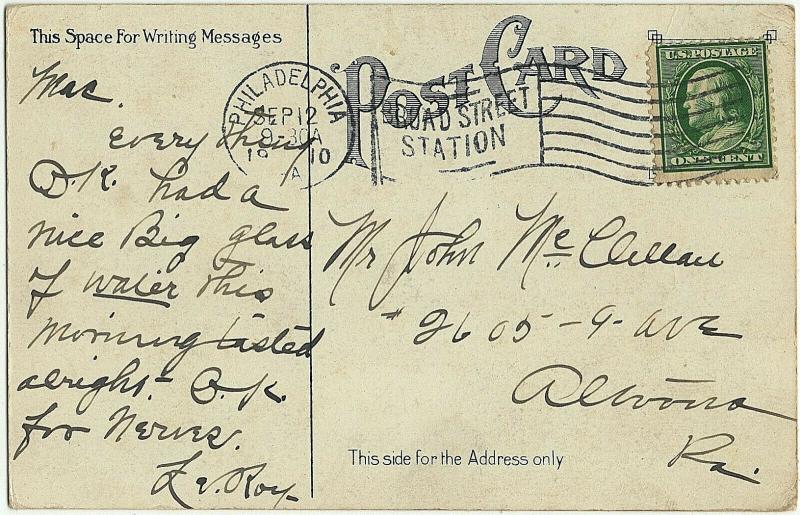 This Space For Writing Messages
Mac.
Every thing
O.K. had a
nice Big glass
of water this
morning tasted
alright - O.K.
for Nerves.
Le Roy
POST CARD
PHILADELPHIA
SEP 12
9-30A
19 10
A
BROAD STREET
STATION
U.S. POSTAGE
ONE CENT
Mr John McClellan
# 2605-9-ave
Altoona
Pa.
This side for the Address only